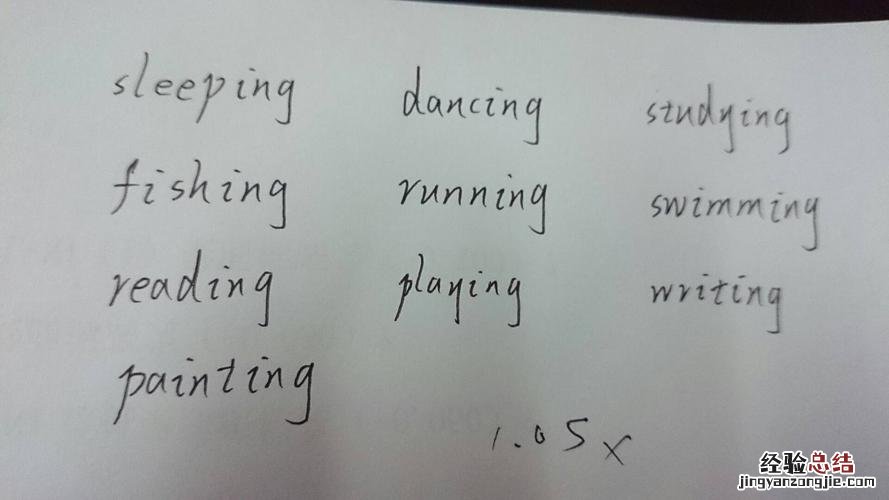 sleeping dancing studying
fishing running swimming
reading playing writing
painting
1.05x
经验总结
jingyanzongjie.com